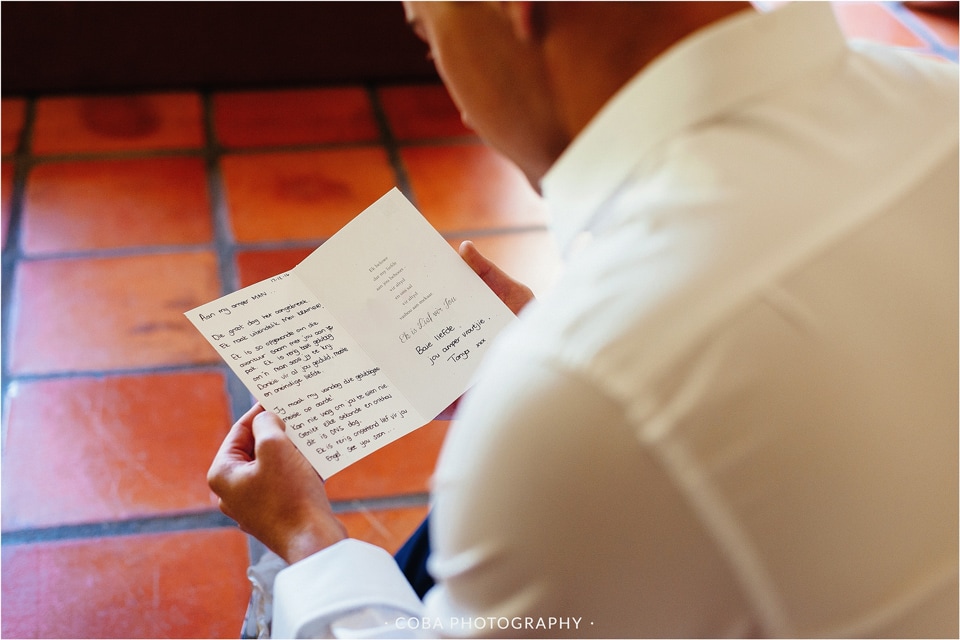 Aan my amper MAN...
Die groot dag het aangebreek.
Ek raak uiteindelik
Ek is so opgewonde om die
avontuur saam met jou aan te
pak. Ek is verig baie gelukkig
om 'n man soos jy te kry.
Dankie vir al jou geduld, liefde
en oneindige liefde.
Jy maak my vandag die gelukkigste
meisie op aarde!
Kan nie wag om jou te sien nie
Geniet elke sekonde en onthou
dit is ONS dag.
Ek is verig ontsettend lief vir jou
Engel. See you soon...
Ek is Lief vir Jou
Baie liefde.
jou amper vroutjie.
Tanya xxx
· COBA PHOTOGRAPHY ·